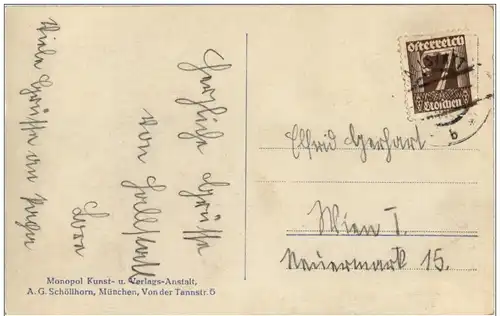 Viele Grüsse an Papa
Herzliche Grüsse
von Hallstatt
Monopol Kunst- u. Verlags-Anstalt,
A. G. Schöllhorn, München, Von der Tannstr. 5
Österreich
7
Groschen
b
Elfrid Gerhart
Wien I.
Neuermarkt 15.